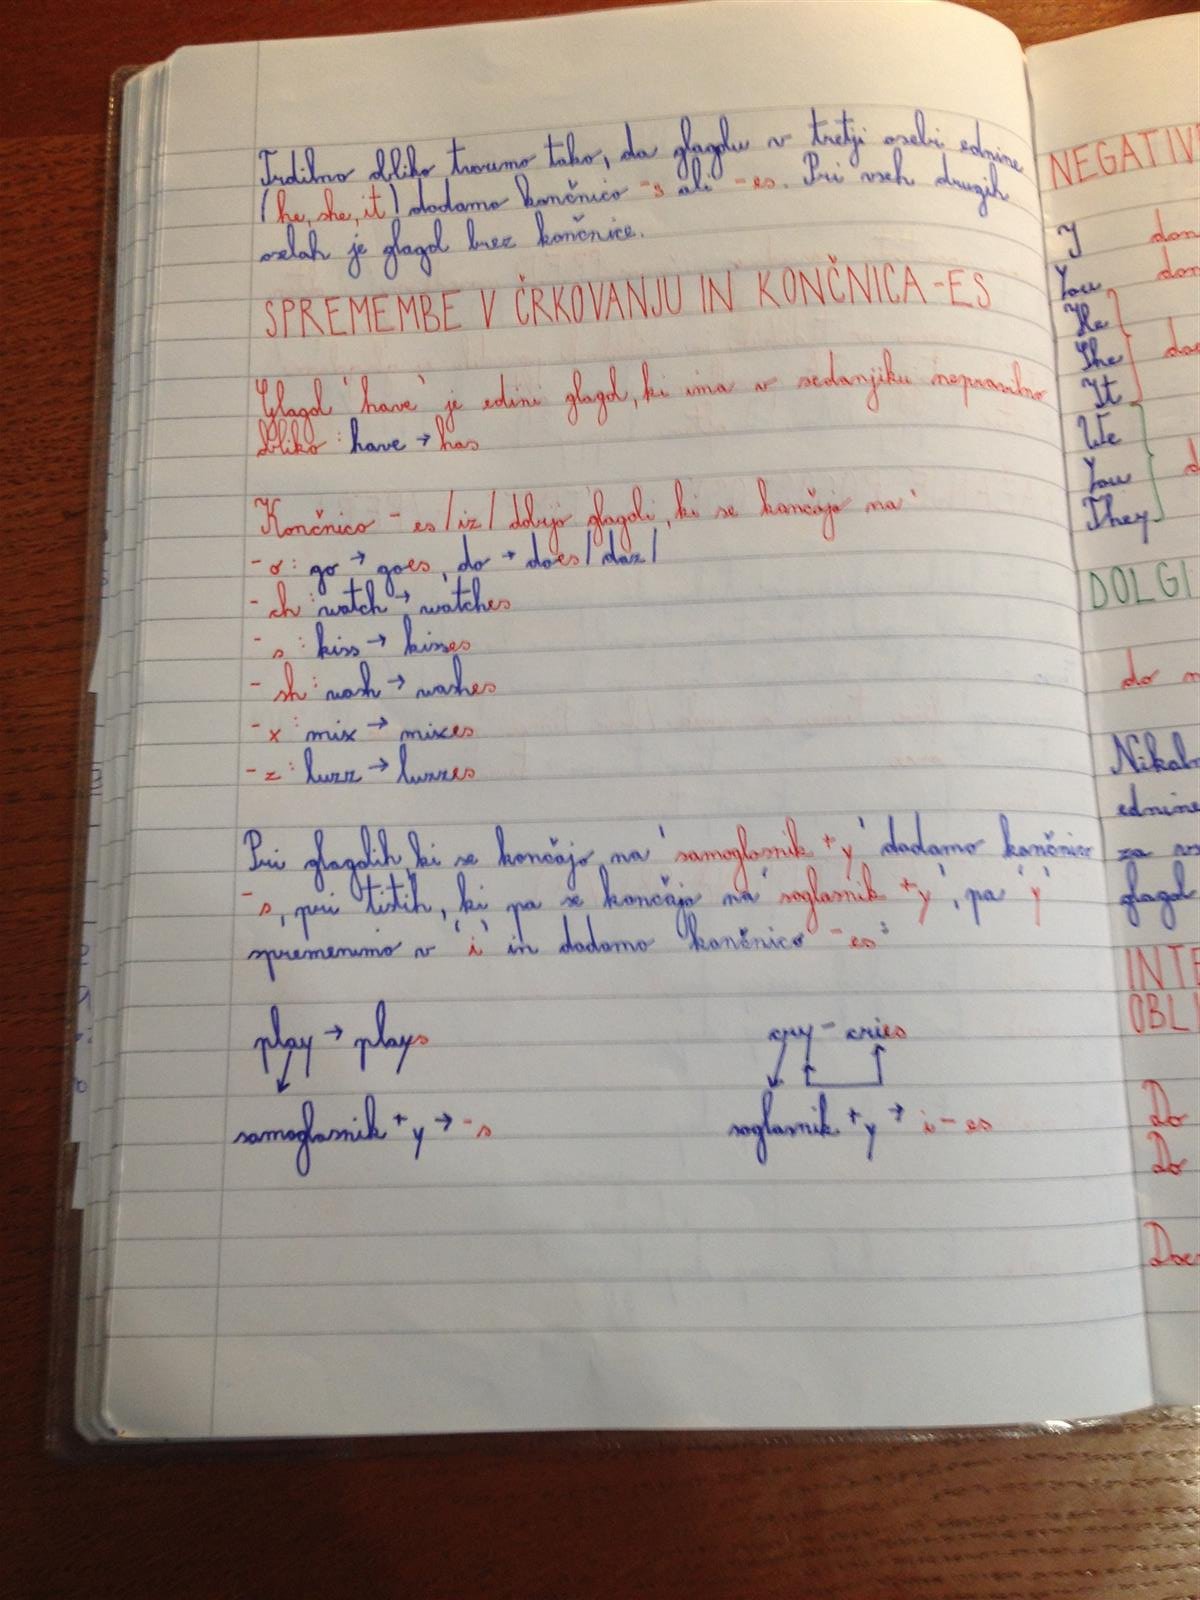 Trdilno obliko tvorimo tako, da glagolu v tretji osebi ednine
(he, she, it) dodamo končnico -s ali -es. Pri vseh drugih
osebah je glagol brez končnice.
SPREMEMBE V ČRKOVANJU IN KONČNICA -ES
Glagol 'have' je edini glagol, ki ima v sedanjiku nepravilno
obliko: have → has
Končnico -es /iz/ dobijo glagoli, ki se končajo na:
-o: go → goes, do → does /daz/
-ch: watch → watches
-s: kiss → kisses
-sh: wash → washes
-x: mix → mixes
-z: buzz → buzzes
Pri glagolih, ki se končajo na 'samoglasnik + y' dodamo končnico
-s, pri tistih, ki pa se končajo na 'soglasnik + y', pa 'y'
spremenimo v 'i' in dodamo končnico -es:
play → plays
cry - cries
samoglasnik + y → -s
soglasnik + y → i - es
NEGATIV
I don
You don
He
She do
It
We
You d
They
DOLGI
do n
Nikaln
ednine
za vs
glagol
INTE
OBLI
Do
Do
Does